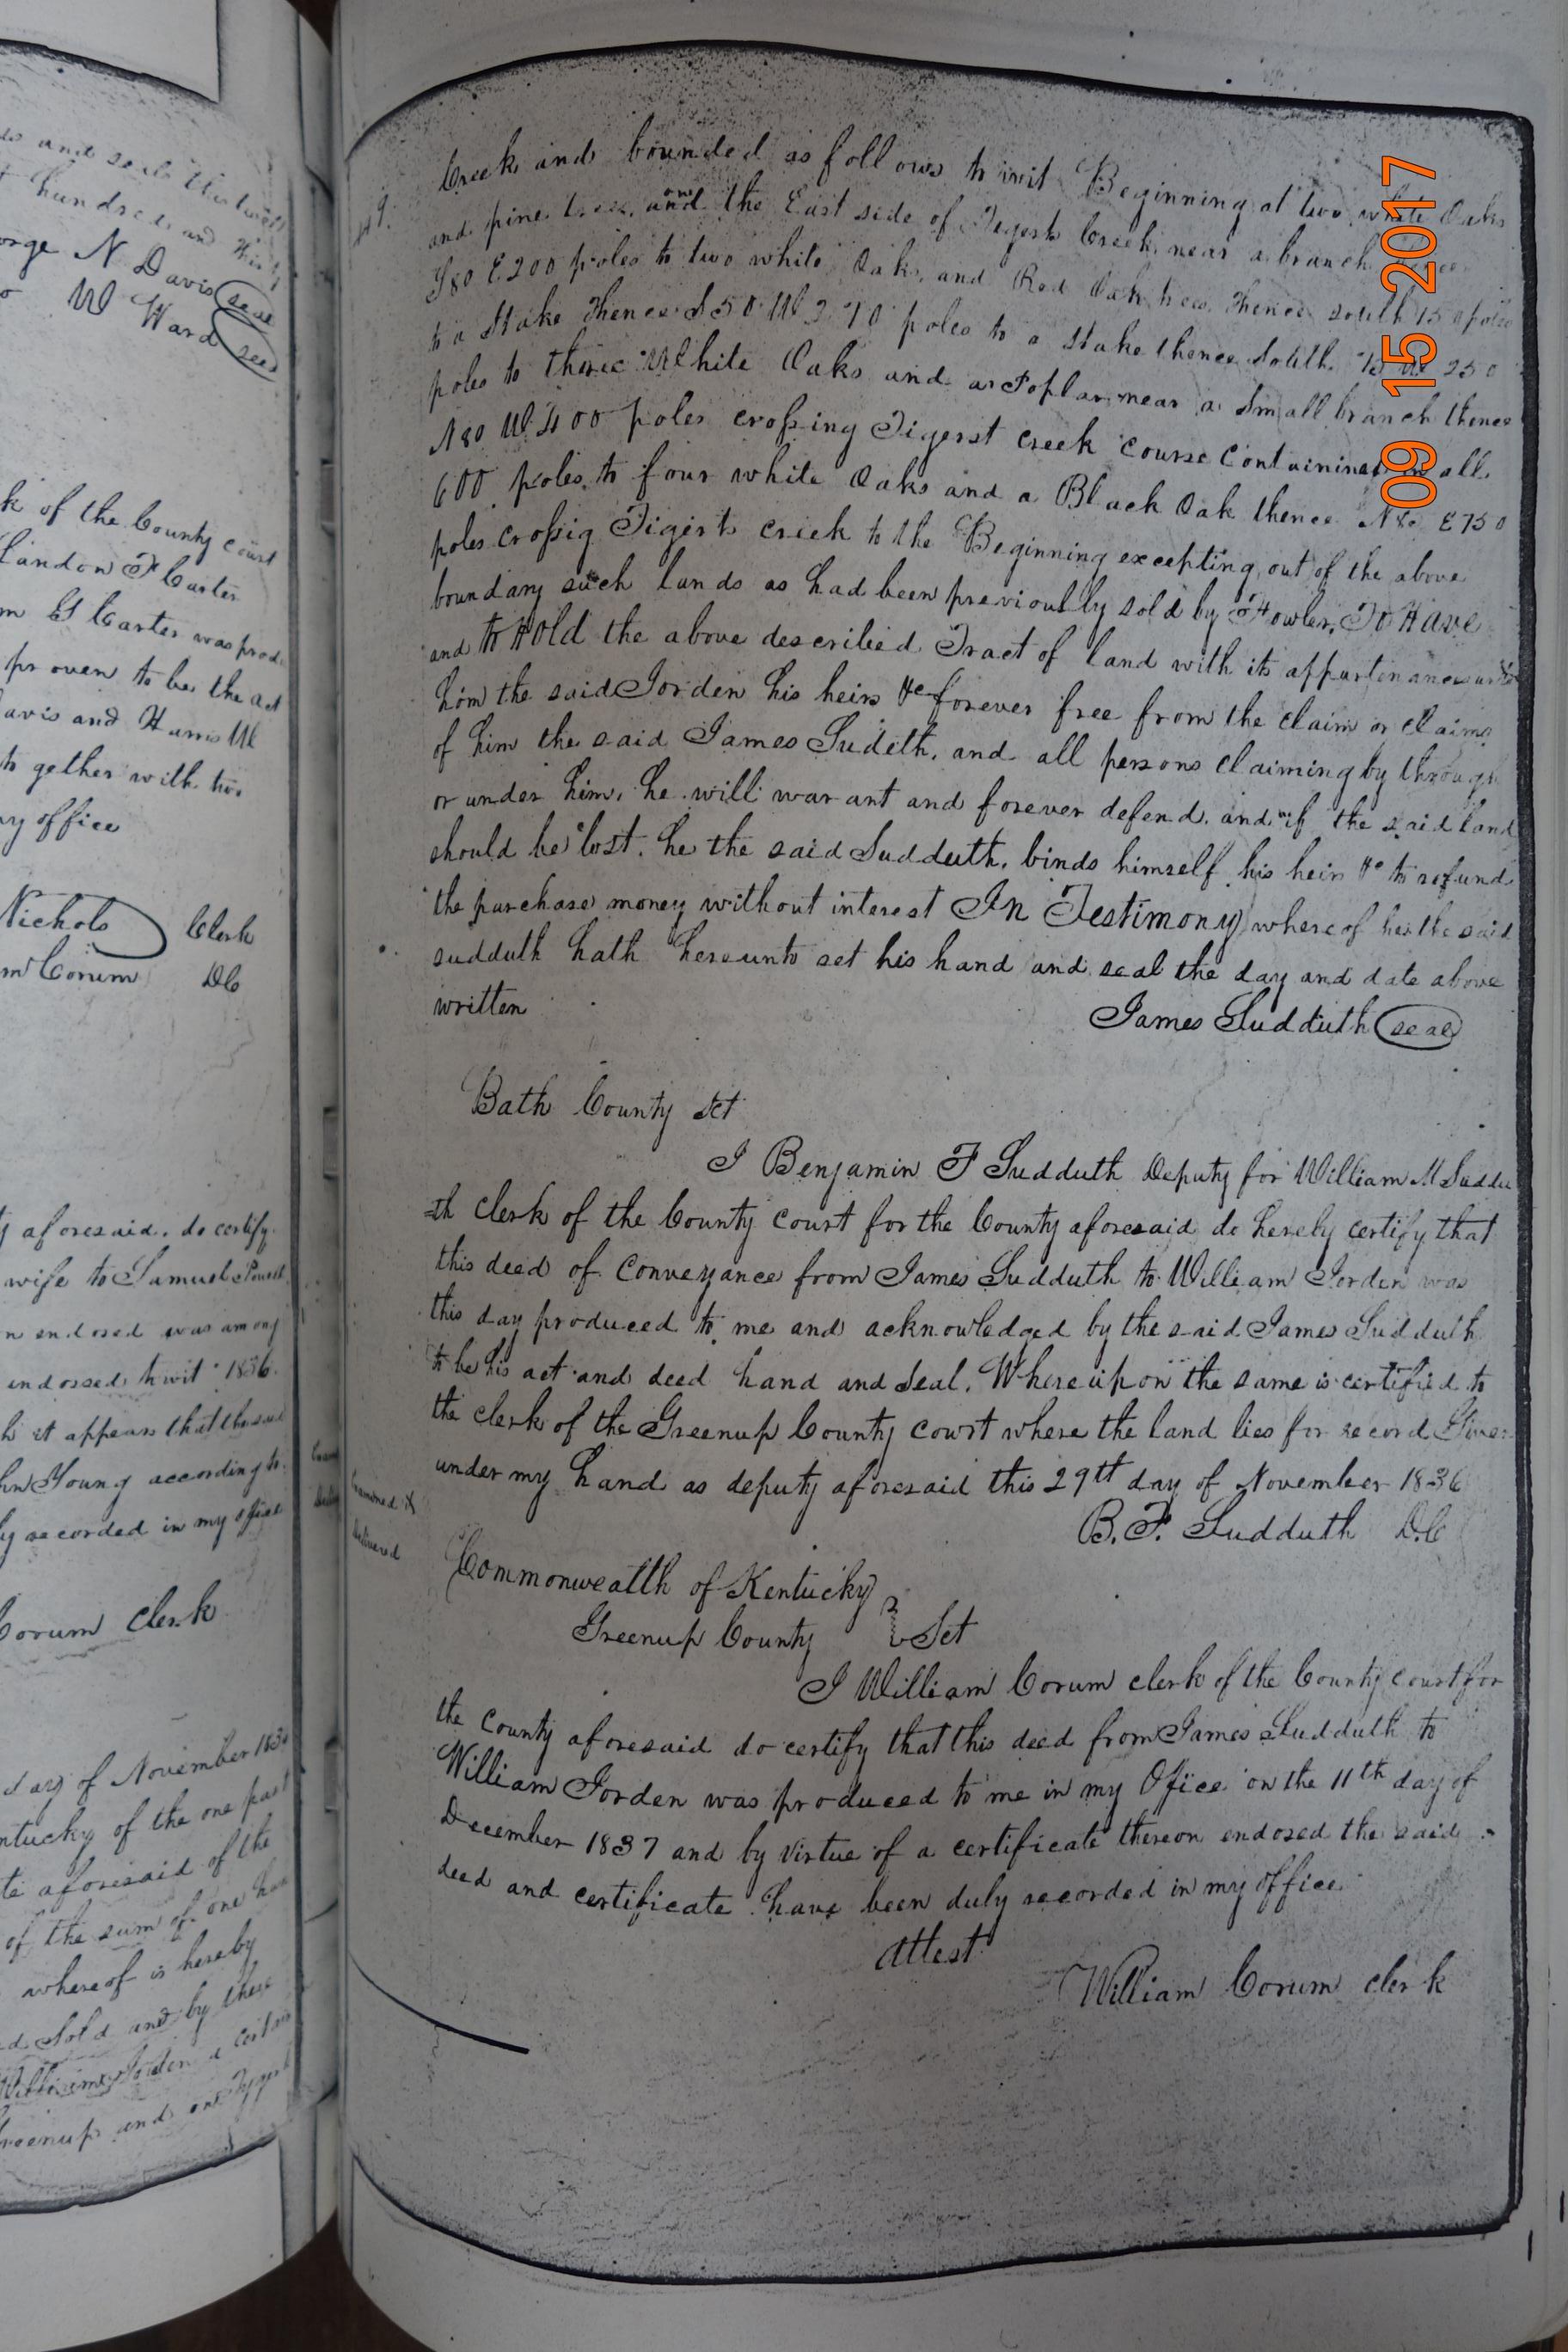 and seals this
hundred and
George N Davis seal
W Ward seal
k of the County court
Landon F Carter
m G Carter was prod
proven to be the act
avis and Harris W
to gether with
my office
Nichols Clerk
m Corum DC
y aforesaid. do certify
wife to Samuel
n endosed was among
endossed towit 1836.
h it appears that the said
hn Young according to
ly recorded in my office
Corum Clerk
day of November 183
ntucky of the one part
te aforesaid of the
of the sum of one hun
whereof is hereby
d Sold and by these
William Jorden a certain
Greenup and on Tygert
Creek and bounded as follows to wit Beginning at two white Oaks
and pine trees, and on the East side of Tygerts Creek near a branch thence
S80 E 200 poles to two white Oaks, and Red Oak trees thence south 150 poles
to a Stake thence S 50 W 270 poles to a stake thence South W 250
poles to three White Oaks and a Poplar near a Small branch thence
N80 W 400 poles crossing Tigerst creek course containing in all
600 poles to four white Oaks and a Black Oak thence E 750
poles crossig Tigerts creek to the Beginning excepting out of the above
boundary such lands as had been previously sold by Fowler. To Have
and to Hold the above described Tract of land with its appurtenances
him the said Jorden his heirs &c forever free from the claim or claims
of him the said James Sudeth, and all persons claiming by through
or under him, he will warant and forever defend, and if the said land
should be lost, he the said Sudduth, binds himself his heirs &c to refund
the purchase money without interest In Testimony whereof he the said
sudduth hath hereunto set his hand and seal the day and date above
written
James Sudduth seal
Bath County Sct
I Benjamin F Sudduth Deputy for William M Suddu
=th clerk of the County court for the County aforesaid do hereby certify that
this deed of Conveyance from James Sudduth to William Jorden was
this day produced to me and acknowledged by the said James Sudduth
to be his act and deed hand and Seal. Whereupon the same is certified to
the clerk of the Greenup County Court where the land lies for record Given
under my hand as deputy aforesaid this 29th day of November 1836
B. F. Sudduth D.C
Examined &
delivered
Commonwealth of Kentucky
Greenup County } Sct
I William Corum clerk of the County court for
the County aforesaid do certify that this deed from James Sudduth to
William Jorden was produced to me in my Office on the 11th day of
December 1837 and by virtue of a certificate thereon endosed the said
deed and certificate have been duly recorded in my office
Attest
William Corum clerk
09 15 2017